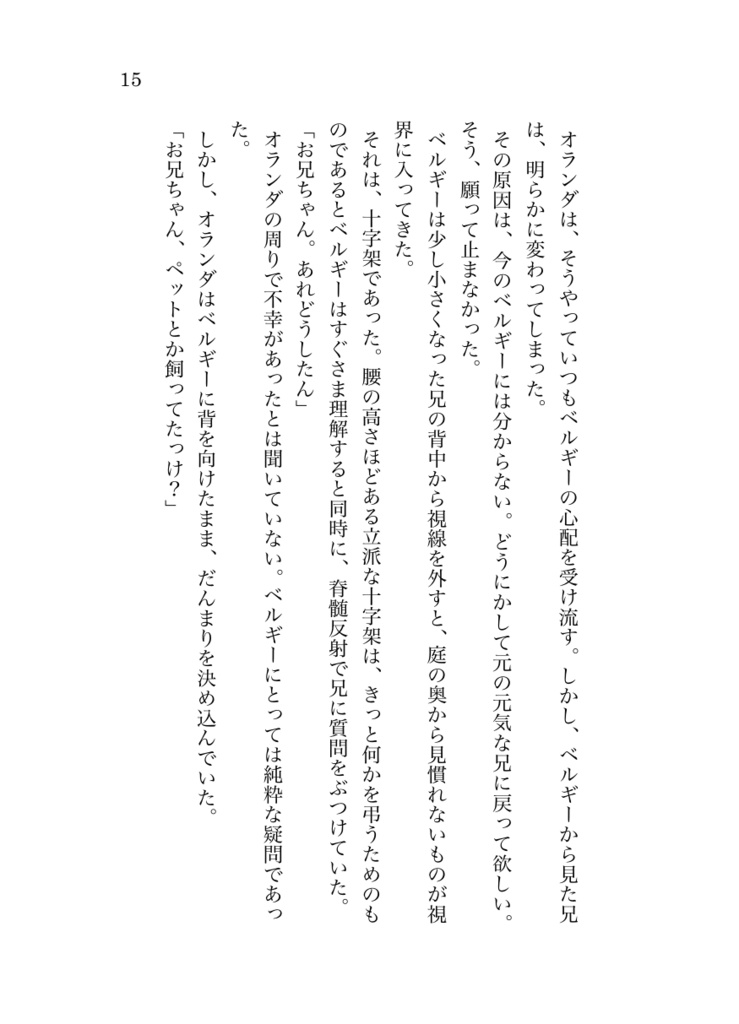 15
オランダは、そうやっていつもベルギーの心配を受け流す。しかし、ベルギーから見た兄
は、明らかに変わってしまった。
その原因は、今のベルギーには分からない。どうにかして元の元気な兄に戻って欲しい。
そう、願って止まなかった。
ベルギーは少し小さくなった兄の背中から視線を外すと、庭の奥から見慣れないものが視
界に入ってきた。
それは、十字架であった。腰の高さほどある立派な十字架は、きっと何かを弔うためのも
のであるとベルギーはすぐさま理解すると同時に、脊髄反射で兄に質問をぶつけていた。
「お兄ちゃん。あれどうしたん」
オランダの周りで不幸があったとは聞いていない。ベルギーにとっては純粋な疑問であっ
た。
しかし、オランダはベルギーに背を向けたまま、だんまりを決め込んでいた。
「お兄ちゃん、ペットとか飼ってたっけ？」